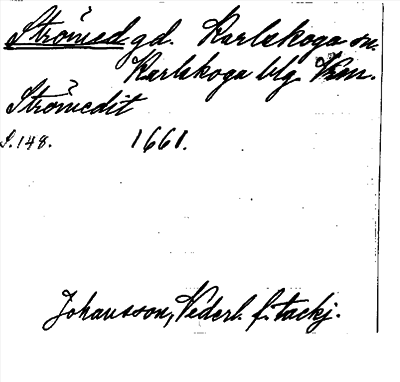 Strömed gd. Karlskoga sn.
Karlskoga blg Vrm.
Strömedit
S. 148. 1661.
Johansson, Nederl. f. tackj.